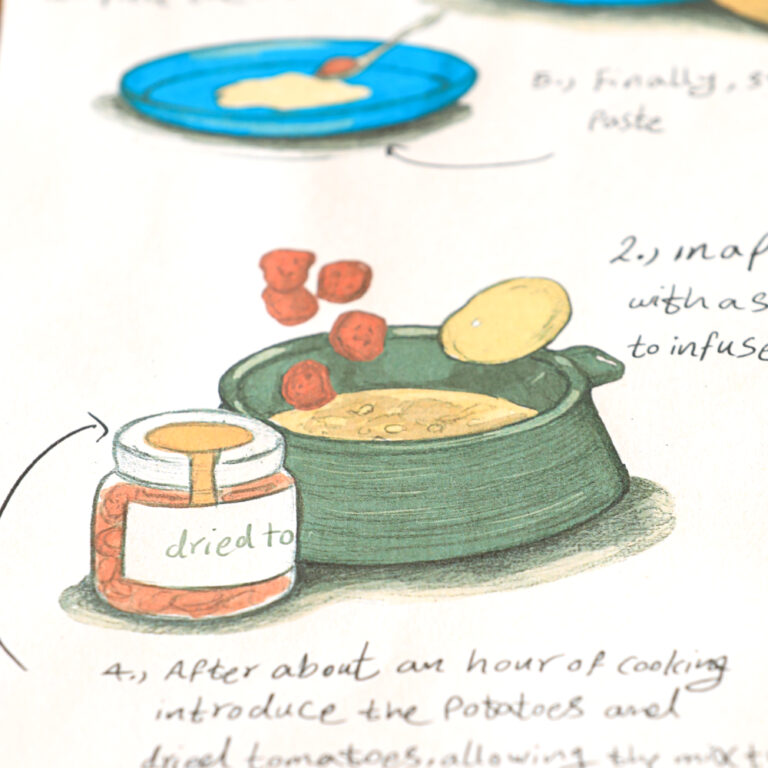 5., Finally, s
paste
2., in a p
with a s
to infuse
dried to
4., After about an hour of cooking
introduce the potatoes and
dried tomatoes, allowing the mixt